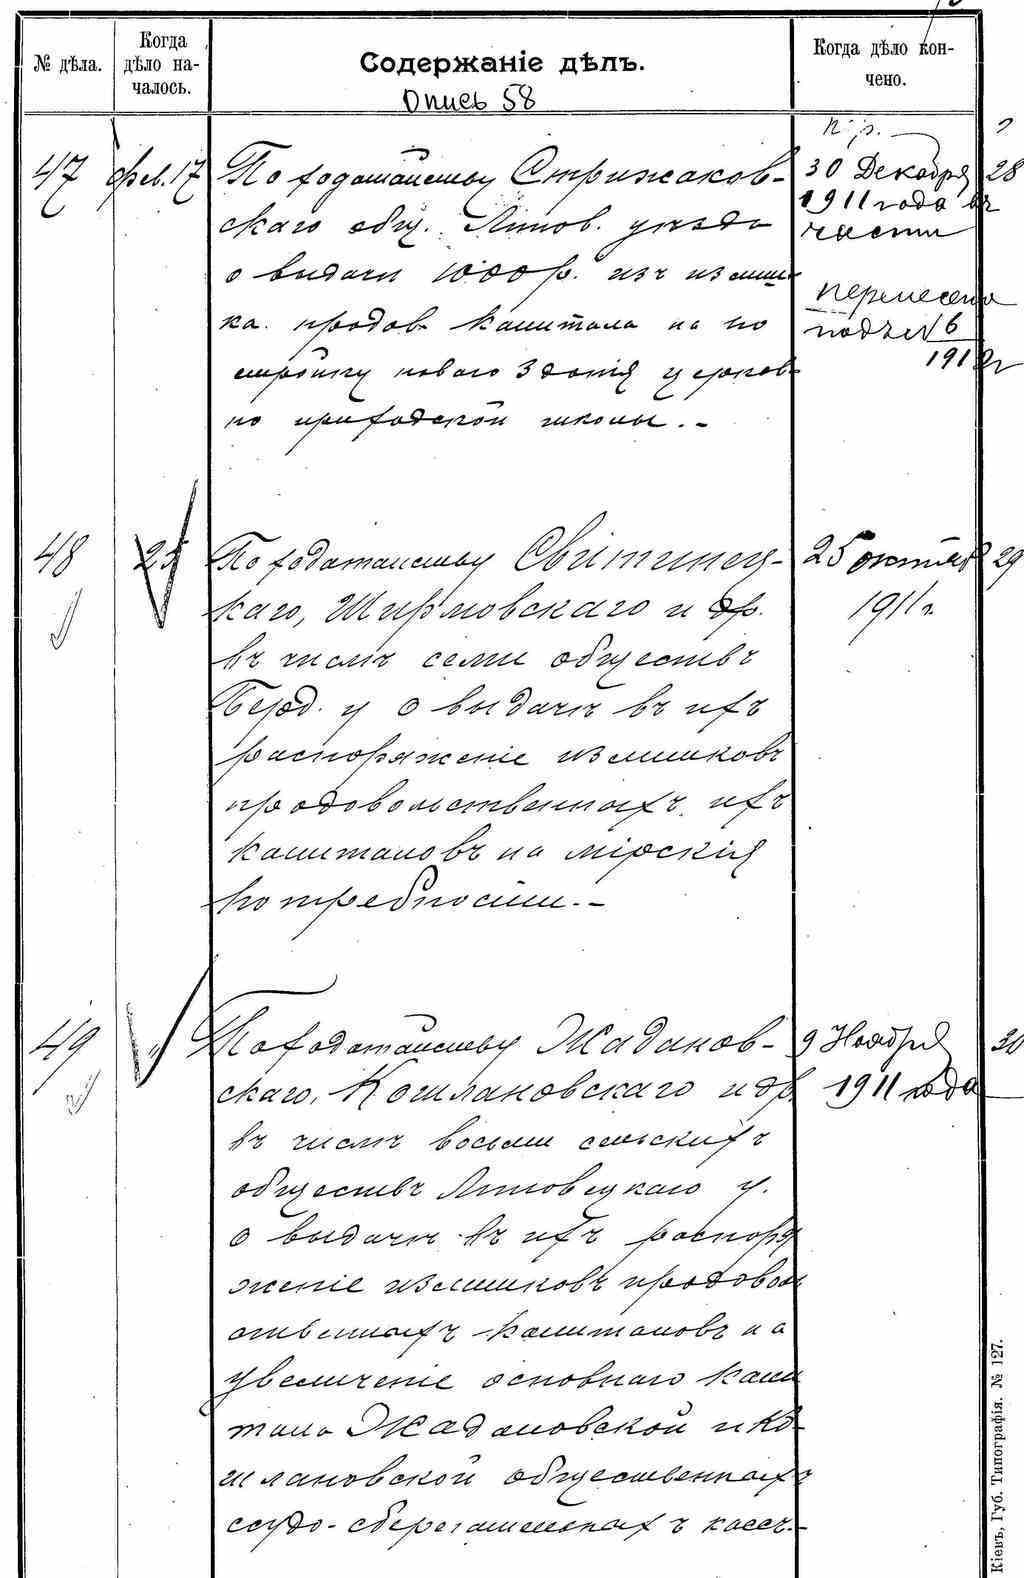 № дѣла.
Когда дѣло началось.
Содержаніе дѣлъ.
Опись 58
Когда дѣло кончено.
47
фев. 17
По ходатайству Стрижаков-
скаго общ. Липов. уѣзда
о выдачѣ 1000 р. изъ излиш
ка продов. капитала на по
стройку новаго зданія церков
но приходской школы. -
30 Декабря
1911 года въ
части
перенесено
подъ № 6
1912 г
28
48
25
По ходатайству Свитинец-
каго, Ширмовскаго и др.
въ числѣ семи обществъ
Берд. у о выдачѣ въ ихъ
распоряженіе излишковъ
продовольственныхъ ихъ
капиталовъ на мірскія
потребности. -
25 октября
1911 г.
29
49
„
По ходатайству Жаданов-
скаго, Кошлановскаго и др.
въ числѣ восьми сельскихъ
обществъ Липовецкаго у.
о выдачѣ въ ихъ распоря
женіе излишковъ продоволь
ственныхъ капиталовъ на
увеличеніе основнаго капи
тала Жадановской и Ко-
шлановской общественныхъ
ссудо-сберегательныхъ кассъ. -
9 Ноября
1911 года
30
Кіевъ, Губ. Типографія. № 127.